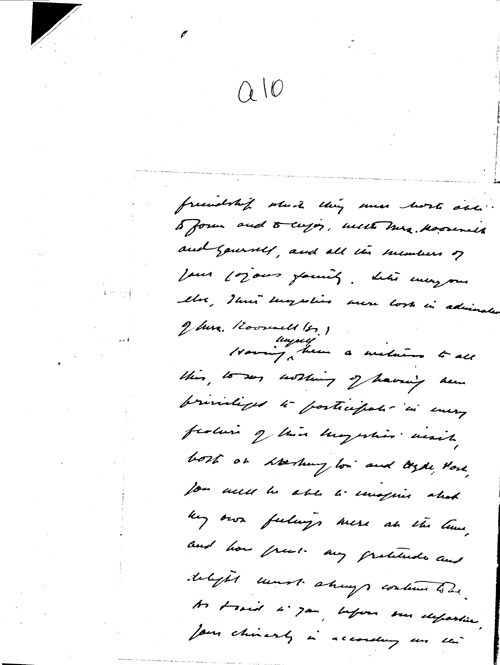 a10
friendship which they were both able
to form and to enjoy, with Mrs. Roosevelt
and yourself, and all the members of
your joyous family. Like everyone
else, Their Majesties were lost in admiration
of Mrs. Roosevelt Sr.)
Having myself been a witness to all
this, to say nothing of having been
privileged to participate in every
feature of Their Majesties' visit,
both at Washington and Hyde Park,
you will be able to imagine what
my own feelings were at the time,
and how great my gratitude and
delight must always continue to be.
As I said to you, before our departure,
your chivalry in according me the